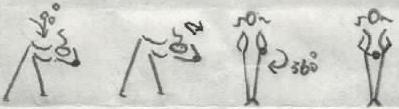 90°
360°